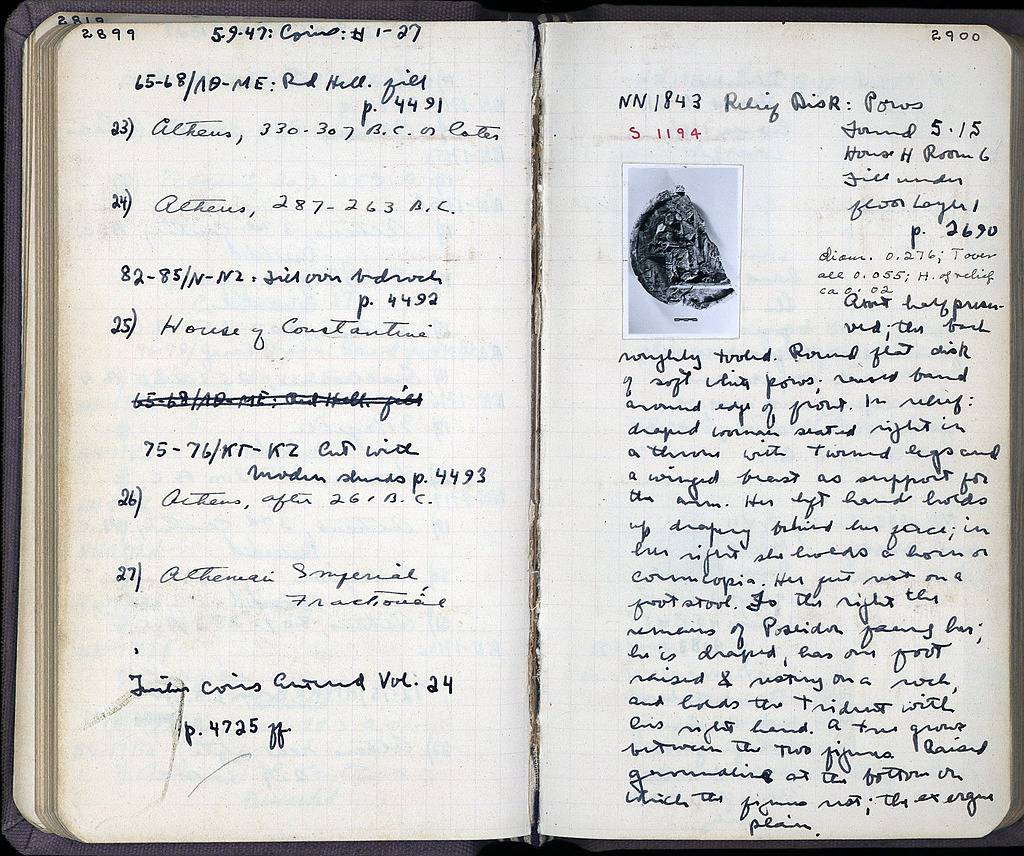 2819
2899
5.9.47: Coins: # 1-27
65-68/ΛΘ-ΜΕ: Red Hell. fill
p. 4491
23) Athens, 330-307 B.C. or later
24) Athens, 287-263 B.C.
82-85/N-NZ: Fill over bedrock
p. 4492
25) House of Constantine
65-68/ΛΘ-ΜΕ: Red Hell. fill
75-76/ΚΓ-ΚΖ Cut with
modern sherds p. 4493
26) Athens, after 261 B.C.
27) Athenian Imperial
Fractional
Further coins entered Vol. 24
p. 4725 ff
2900
NN 1843 Relief Disk: Poros
S 1194
Found 5.15
House H Room 6
Fill under
floor layer 1
p. 2690
diam. 0.276; T over
all 0.055; H. of relief
ca 0.02
About half preser-
ved; the back
roughly tooled. Round flat disk
of soft white poros; raised band
around edge of front. In relief:
draped woman seated right in
a throne with turned legs and
a winged beast as support for
the arm. Her left hand holds
up drapery behind her face; in
her right she holds a horn or
cornucopia. Her feet rest on a
footstool. To the right the
remains of Poseidon facing her;
he is draped, has one foot
raised & resting on a rock,
and holds the trident with
his right hand. A tree grows
between the two figures. Raised
groundline at the bottom on
which the figures rest; the exergue
plain.